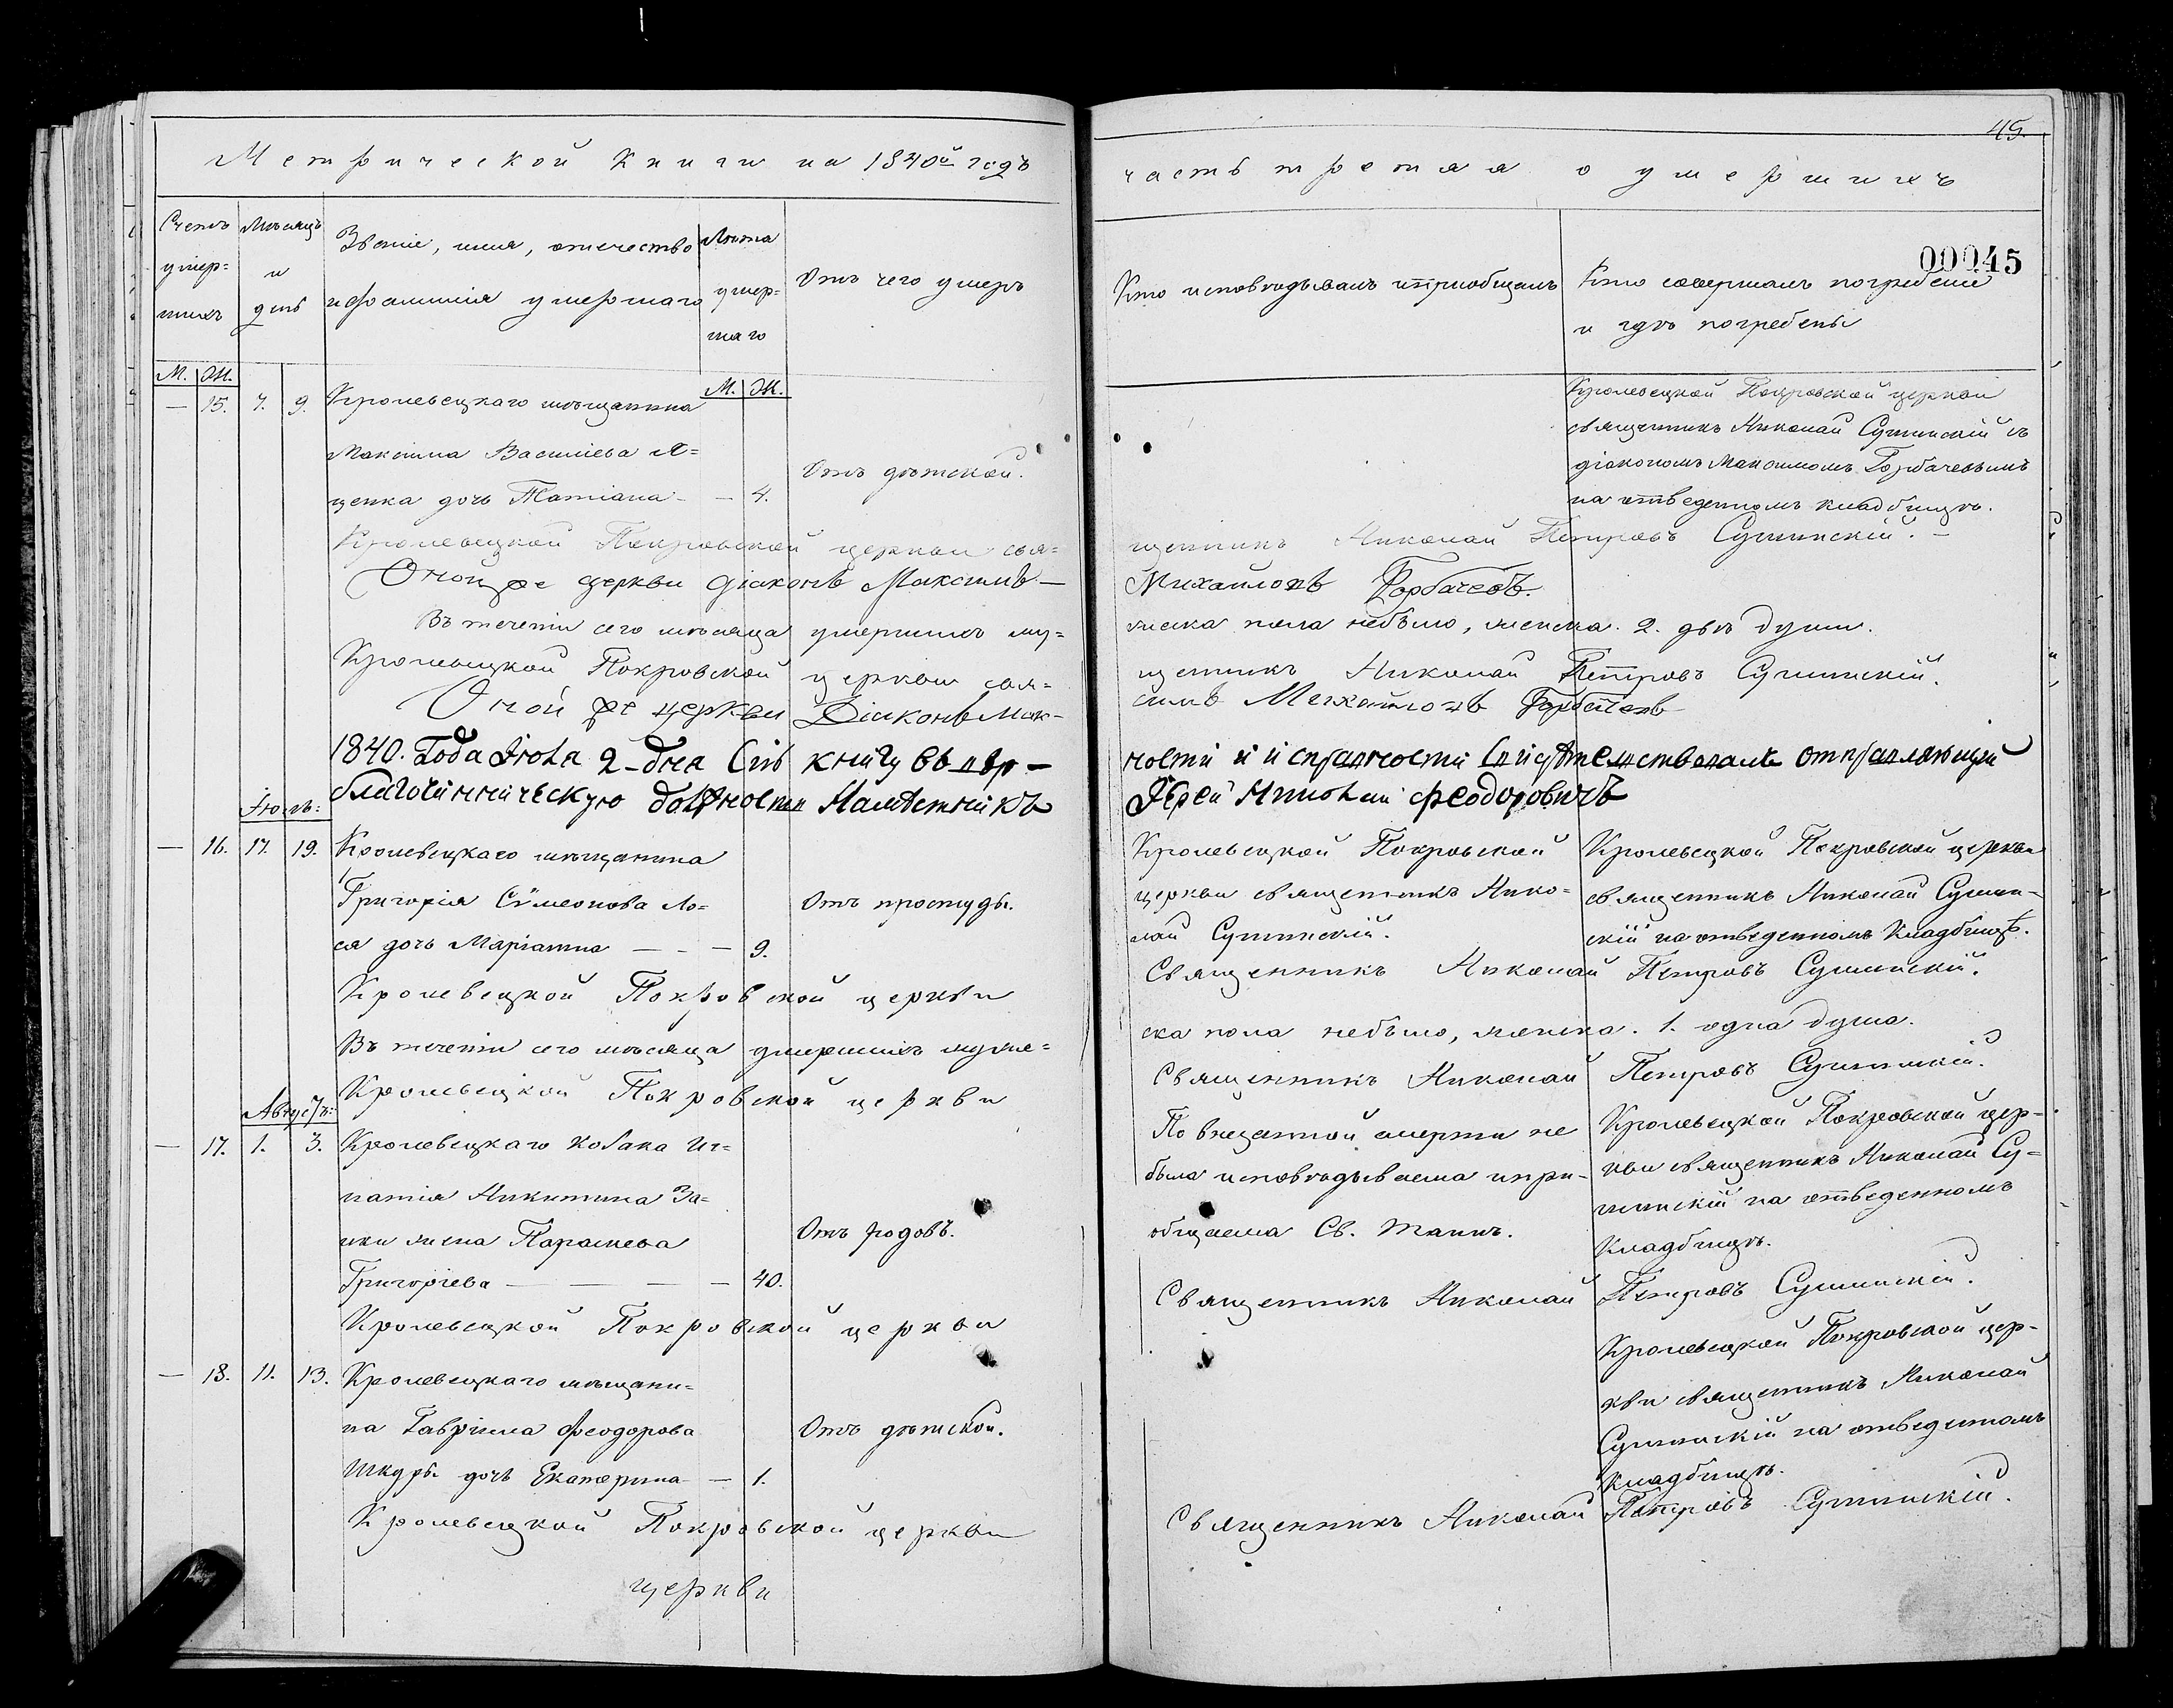 45.
Метрической Книги на 1840й годъ
часть третяя о умершихъ
00045
Счетъ умер=шихъ
Мѣсяцъ и день
Званіе, имя, отечество и фамилія умершаго
Лѣта умер=шаго
Отъ чего умеръ
Кто исповѣдывалъ и пріобщалъ
Кто совершалъ погребеніе и гдѣ погребены
М. Ж.
М. Ж.
— 15. 7. 9. Кролевецкаго мѣщанина
Максима Василіева
ценка дочь Татіана — — 4.
Отъ дѣтской.
Кролевецкой Покровской церкви
священникъ Николай Сушинскій съ
діакономъ Максимомъ Горбачевымъ
на отведенномъ кладбищѣ.
Кролевецкой Покровской церкви свя=
щенникъ Николай Петровъ Сушинскій. —
Оной же церкви діаконъ Максимъ —
Михайловъ Горбачевъ.
Въ теченіи сего мѣсяца умершихъ му=
жеска пола небыло, женска. 2. двѣ души.
Кролевецкой Покровской церкви свя=
щенникъ Николай Петровъ Сушинскій.
Оной же церкви Діаконъ Мак-
симъ Михайловъ Горбачевъ
1840. Года Іюля 2-дня Сію книгу въ вѣр-
ности и исправности свидѣтельствовалъ отправляющій
благочинническую должность Намѣстникъ
Іерей Феодоровичъ
Іюль:
— 16. 17. 19. Кролевецкаго мѣщанина
Григорія Сѵмеонова Ло=
ся дочь Маріанна — — — 9.
Отъ простуды.
Кролевецкой Покровской
церкви священникъ Нико=
лай Сушинскій.
Кролевецкой Покровской церкви
священникъ Николай Сушин-
скій на отведенномъ кладбищѣ.
Кролевецкой Покровской церкви
Священникъ Николай Петровъ Сушинскій.
Въ теченіи сего мѣсяца умершихъ муже=
ска пола небыло, женска. 1. одна душа.
Кролевецкой Покровской церкви
Священникъ Николай Петровъ Сушинскій.
Августъ:
— 17. 1. 3. Кролевецкаго козака Иг=
натія Никитина За=
ики жена Параскева
Григоріева — — — — 40.
Отъ родовъ.
По внезапной смерти не
была исповѣдываема и прі-
общаема Св. Таинъ.
Кролевецкой Покровской цер-
кви священникъ Николай Су=
шинскій на отведенномъ
кладбищѣ.
Кролевецкой Покровской церкви
Священникъ Николай Петровъ Сушинскій.
— 18. 11. 13. Кролевецкаго мѣщани=
на Гавріила Феодорова
Шкуры дочь Екатерина — — 1.
Отъ дѣтской.
Кролевецкой Покровской цер-
кви священникъ Николай
Сушинскій на отведенномъ
кладбищѣ.
Кролевецкой Покровской церкви
Священникъ Николай Петровъ Сушинскій.
церкви